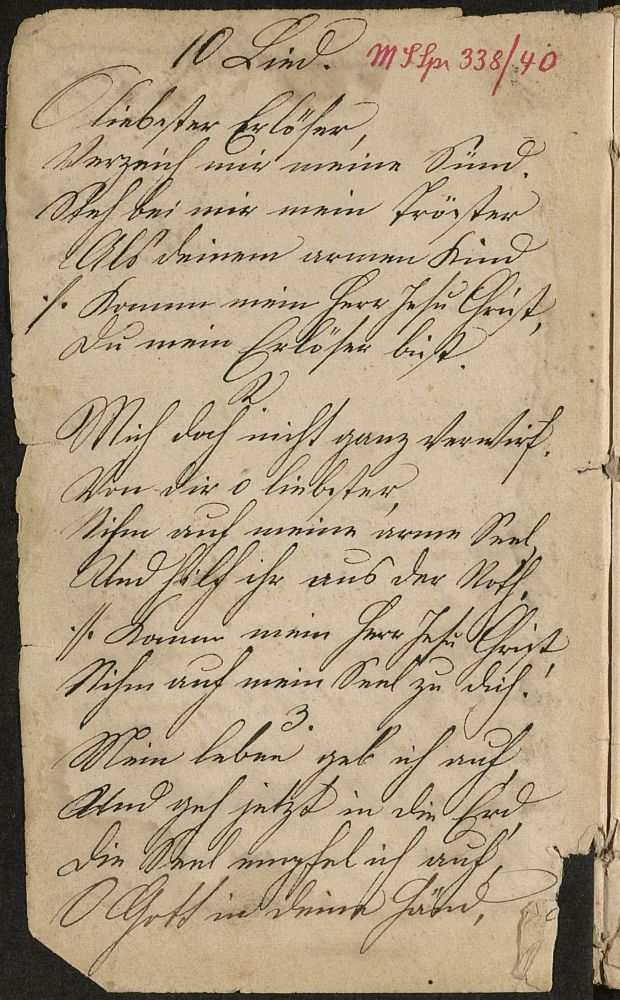 10 Lied. MS Spr 338/40
O liebster Erlöser,
Verzeich mir meine Sünd.
Steh bei mir mein Tröster
Als deinem armen Kind
·/· Komm mein Herr Jesu Christ,
Du mein Erlöser bist.
2
Mich doch nicht ganz verwirf.
Von dir o liebster,
Nihm auf meine arme Seel,
Und hilf ihr aus der Noth.
·/· Komm mein Herr Jesu Christ
Nihm auf mein Seel zu dich!
3.
Mein leben geb ich auf,
Und geh jetzt in die Erd
Die Seel empfel ich auf,
O Gott in deine Händ,